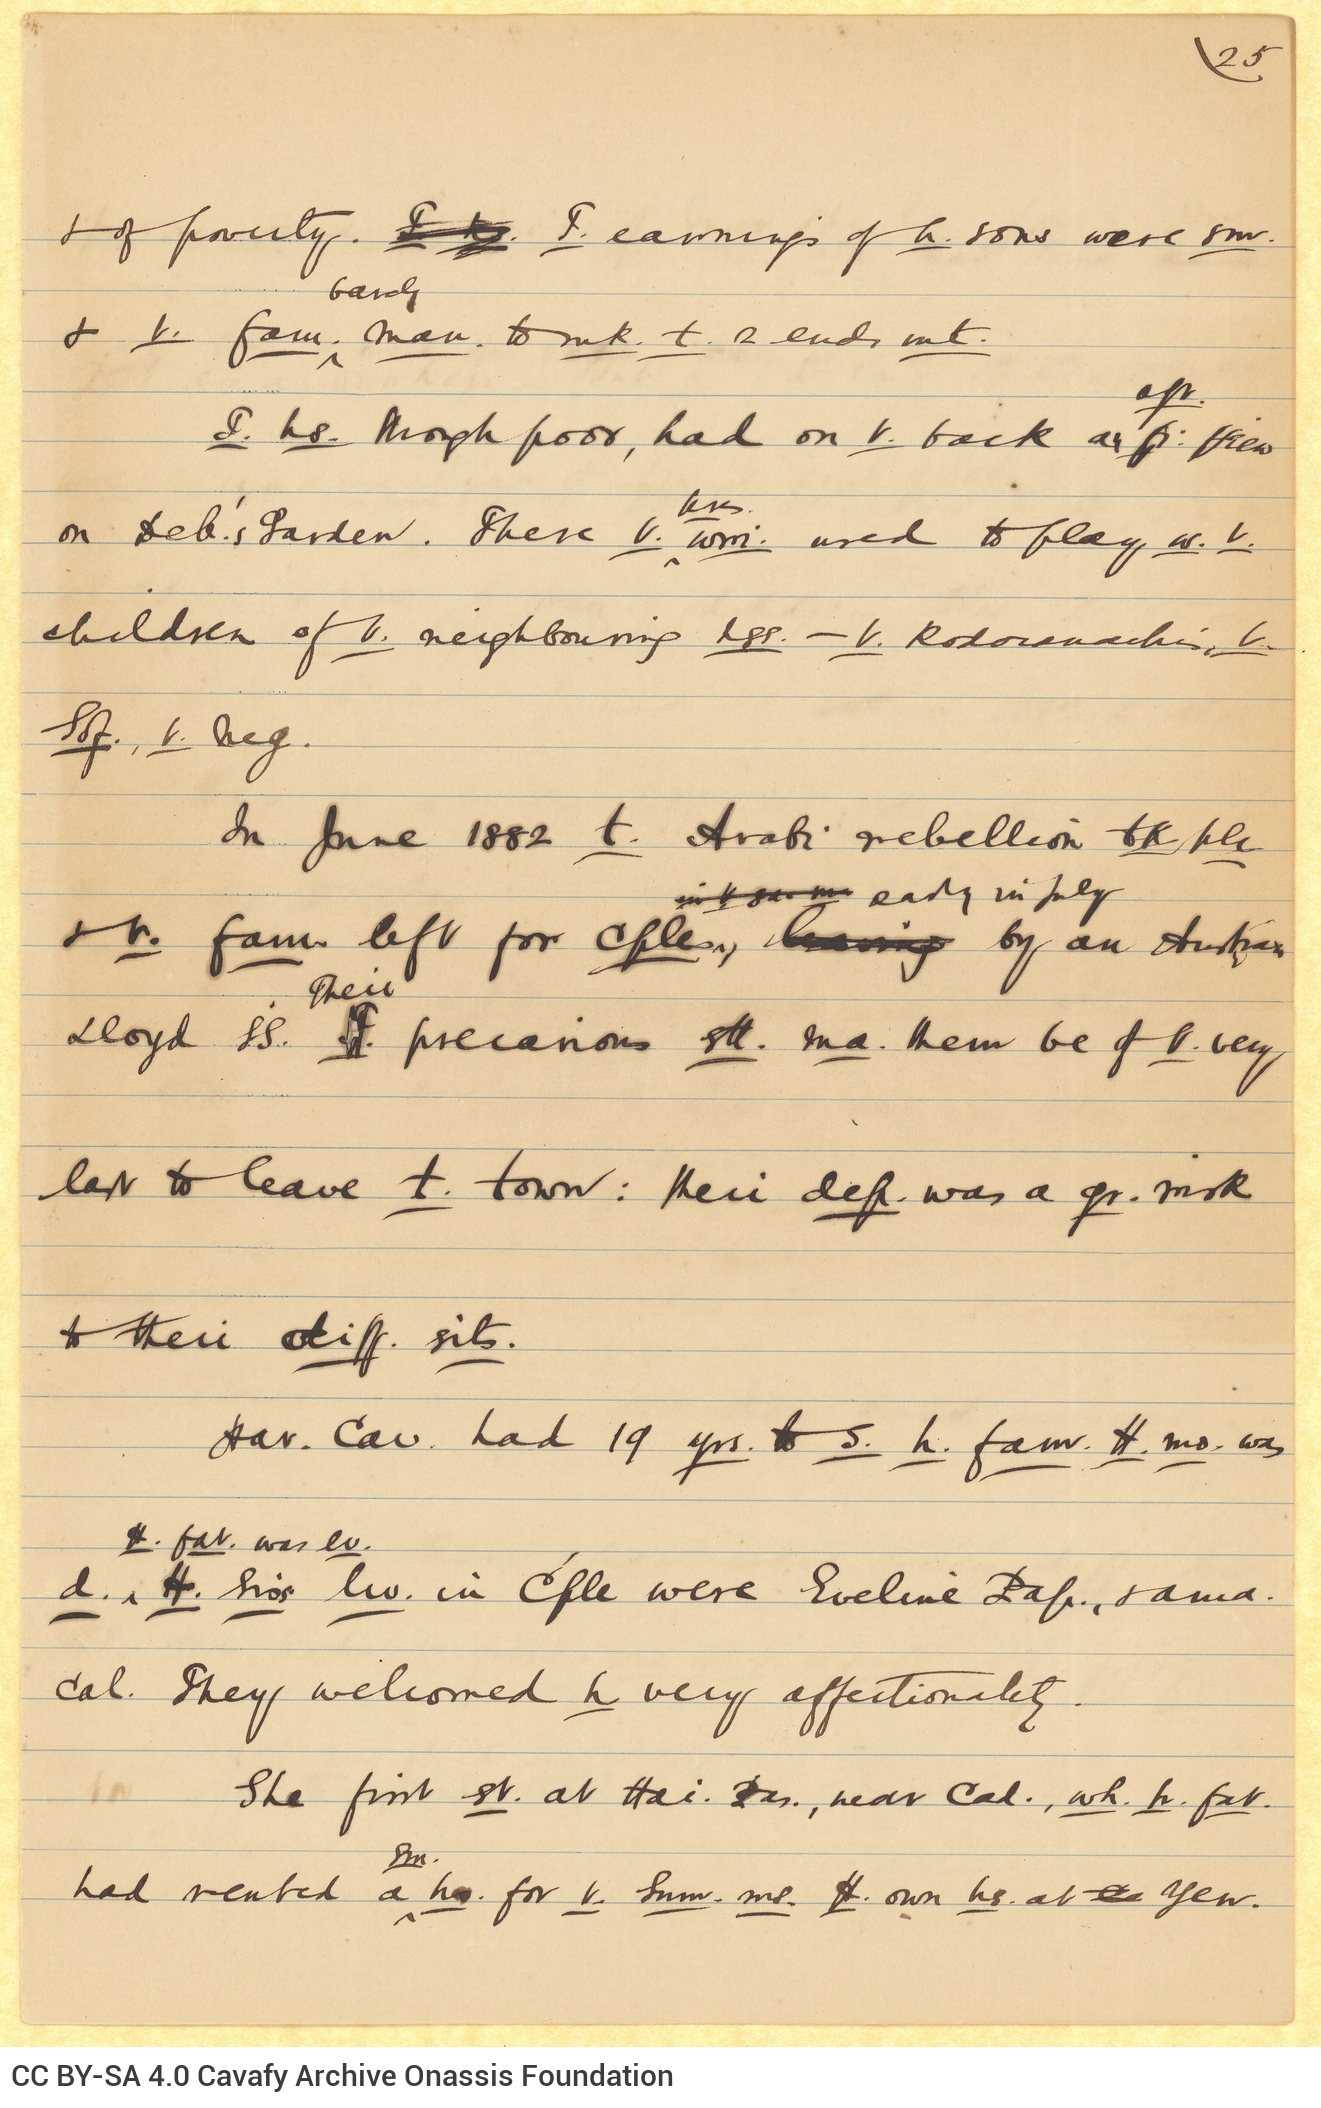 25
& of poverty. T. earnings of h. sons were sm.
barely
& t. fam. man. to mk. t. 2 ends mt.
aft.
T. hs. though poor, had on t. back a view
on Deb.'s Garden. There t. used to play w. t.
children of t. neighbouring hss. — t. Rodocanachis, t.
t. Neg.
In June 1882 t. Arabi rebellion tk plc
early in July
& t. fam. left for Cple, leaving by an Austrian
Their
Lloyd SS. precarious stt. ma. them be of t. very
last to leave t. town: their dep. was a gr. risk
to their diff. sits.
Har. Cav. had 19 yrs. to s. h. fam. H. mo. was
H. fat. was lv.
d. H. sis liv. in Cple were Eveline Pap., & ama.
Cal. They welcomed h very affectionately.
She first st. at Hai. Pas., near Cad., wh. h. fat.
sm.
had rented a hs. for t. Sum. ms. H. own hs. at Yen.
CC BY-SA 4.0 Cavafy Archive Onassis Foundation